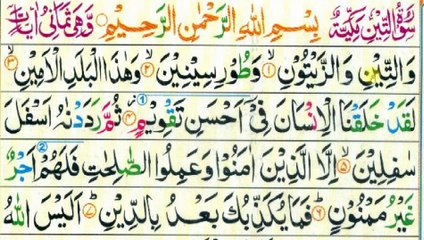 سُوْرَةُ التِّيْنِ مَكِّيَّةٌ بِسْمِ اللهِ الرَّحْمٰنِ الرَّحِيْمِ وَهِيَ ثَمَانِيْ اٰيَاتٍ
وَالتِّيْنِ وَالزَّيْتُوْنِ ۙ۱ وَطُوْرِ سِيْنِيْنَ ۙ۲ وَهٰذَا الْبَلَدِ الْاَمِيْنِ ۙ۳
لَقَدْ خَلَقْنَا الْاِنْسَانَ فِيْٓ اَحْسَنِ تَقْوِيْمٍ ۴ ثُمَّ رَدَدْنٰهُ اَسْفَلَ
سٰفِلِيْنَ ۙ۵ اِلَّا الَّذِيْنَ اٰمَنُوْا وَعَمِلُوا الصّٰلِحٰتِ فَلَهُمْ اَجْرٌ
غَيْرُ مَمْنُوْنٍ ۶ فَمَا يُكَذِّبُكَ بَعْدُ بِالدِّيْنِ ۷ اَلَيْسَ اللهُ